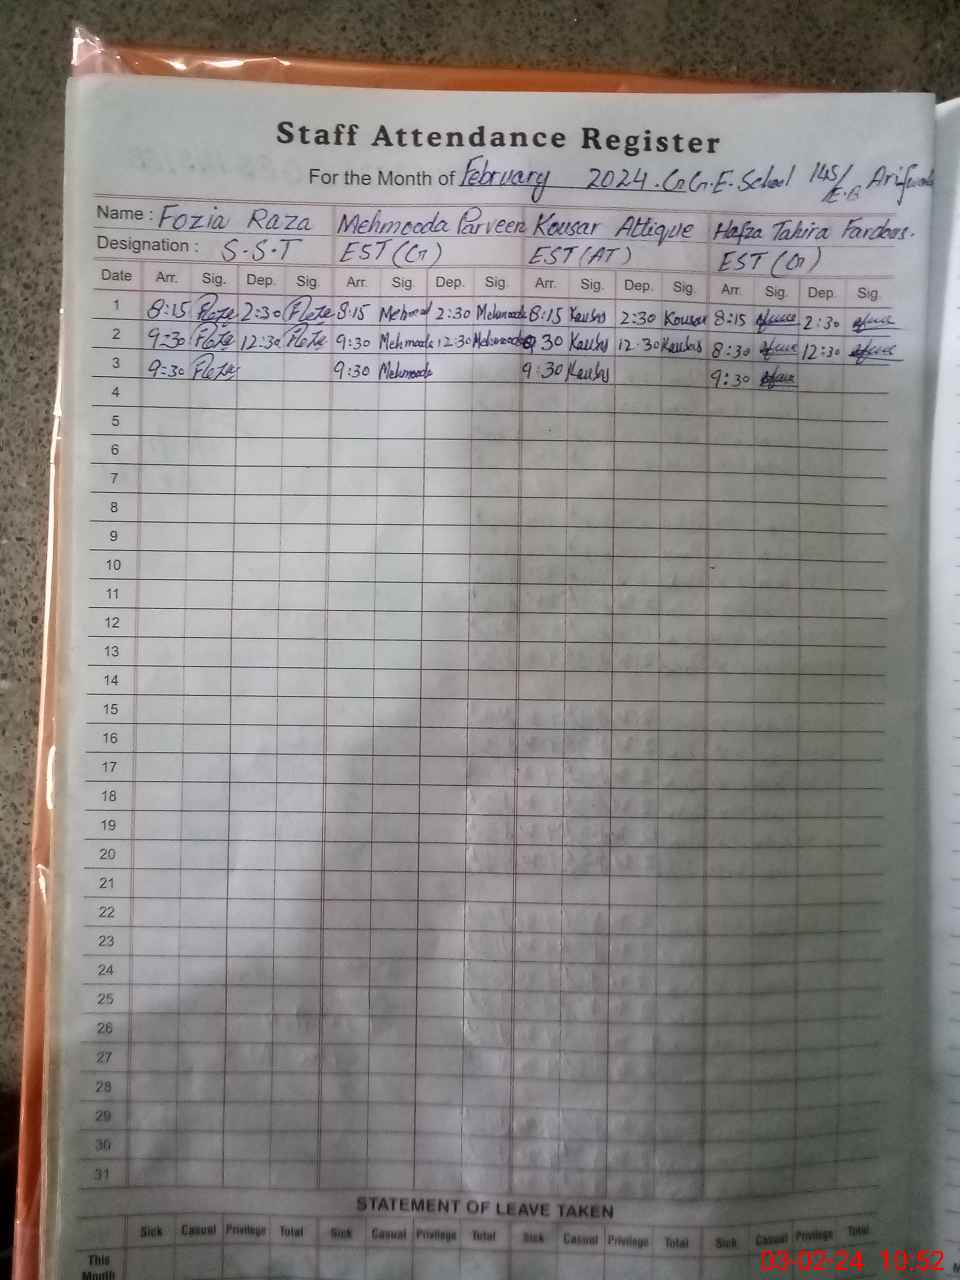 Staff Attendance Register
For the Month of February 2024. G.G.E. School 145/E.B Arifwala
Name : Fozia Raza Mehmooda Parveen Kousar Attique Hafza Tahira Fardous.
Designation : S.S.T EST(G) EST(AT) EST(G)
Date Arr. Sig. Dep. Sig. Arr. Sig. Dep. Sig. Arr. Sig. Dep. Sig. Arr. Sig. Dep. Sig.
1 8:15 2:30 8:15 Mehmood 2:30 Mehmooda 8:15 Kousar 2:30 Kousar 8:15 2:30
2 9:30 12:30 9:30 Mehmooda 12:30 Mehmooda 9:30 Kousar 12:30 Kousar 8:30 12:30
3 9:30 9:30 Mehmooda 9:30 Kousar 9:30
4
5
6
7
8
9
10
11
12
13
14
15
16
17
18
19
20
21
22
23
24
25
26
27
28
29
30
31
STATEMENT OF LEAVE TAKEN
Sick Casual Privilege Total Sick Casual Privilege Total Sick Casual Privilege Total Sick Casual Privilege Total
This
Month
03-02-24 10:52